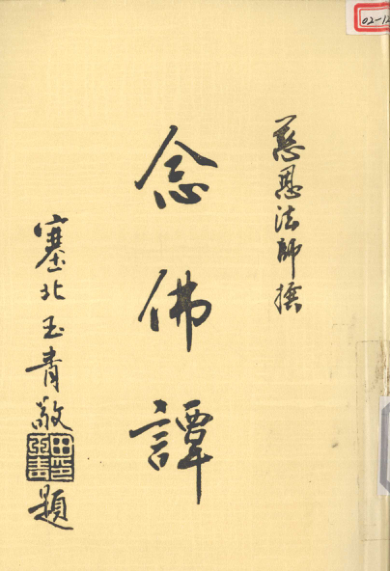 02-12
慈恩法師撰
念佛譚
塞北玉青敬題